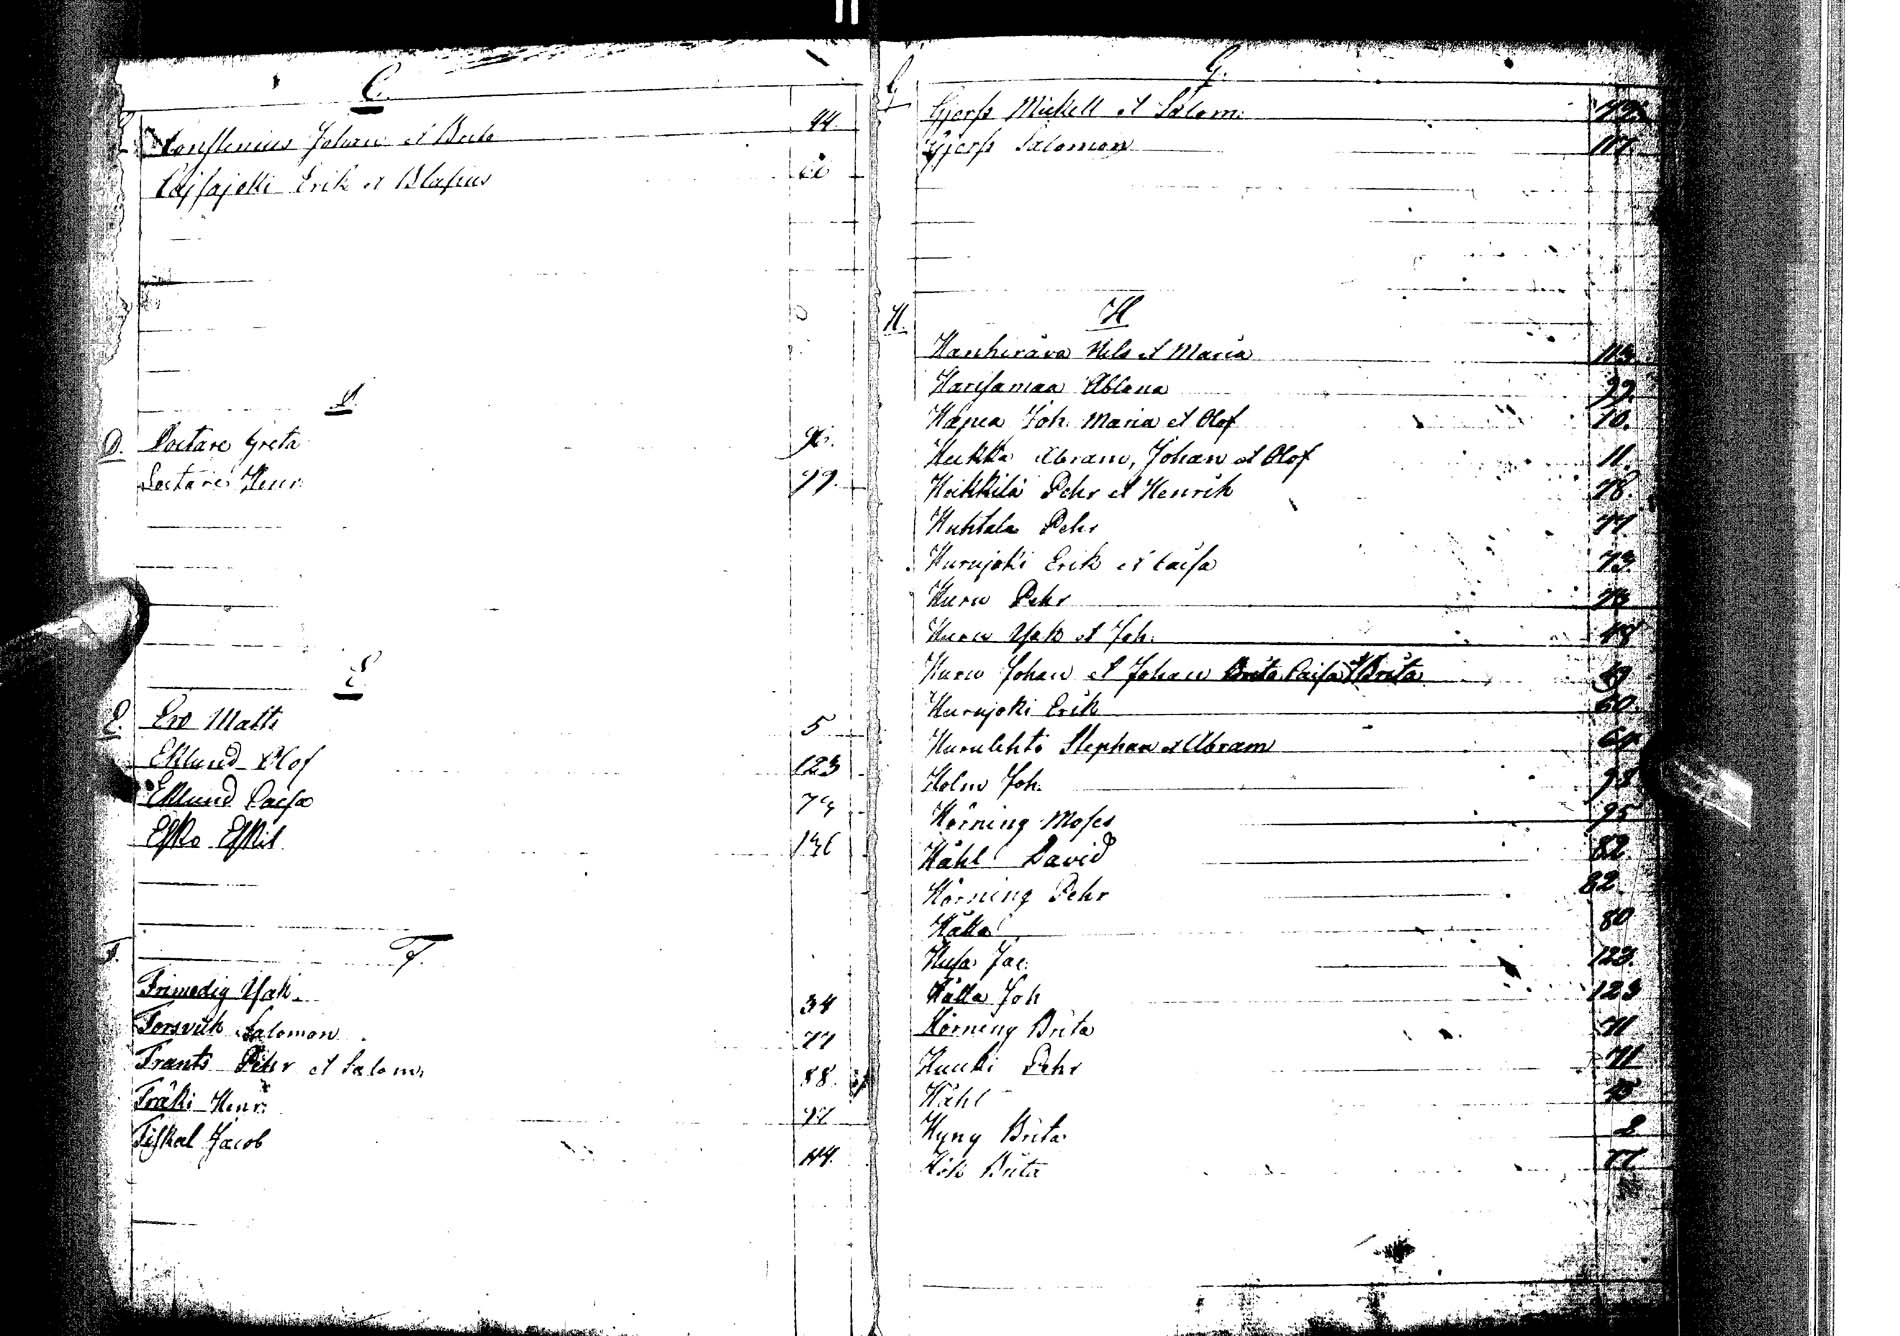 C.
Johan et Brita 44.
Erik et Blasius
D.
D. Doctare Greta
Doctare Henr. 99.
E.
E. Ero Matts 5
Eklund Olof 123
Eklund Caisa
Esko Eskil 136
F. F.
Frimodig Isak 34
Forsvik Salomon 77
Frants Pehr et Salom. 88.
Fräki Henr.
Fiskal Jacob 114.
G G.
Gjers Mickell et Salom.
Gjers Salomon 117
H. H
Kanhirava Nils et Maria 113.
Hansamaa Ablona 99.
Hapea Joh. Maria et Olof 10.
Heikka Abram, Johan et Olof 11.
Heikkilä Pehr et Henrik 78.
Huhtala Pehr 77
Hurujoki Erik et Caisa 73.
Huru Pehr 73
Huru Isak et Joh. 48
Huru Johan et Johan Brita Caisa et Brita
Hurujoki Erik 60
Hurulehto Stephan et Abram 64
Holm Joh. 98
Hörning Moses 95
Håhl David 82.
Hörning Pehr 82
Hätta 80
Husa Jac. 123.
Hätta Joh 123
Hörning Brita 71
Huuki Pehr 71
Håhl
Hyny Brita 2
Hök Brita 77